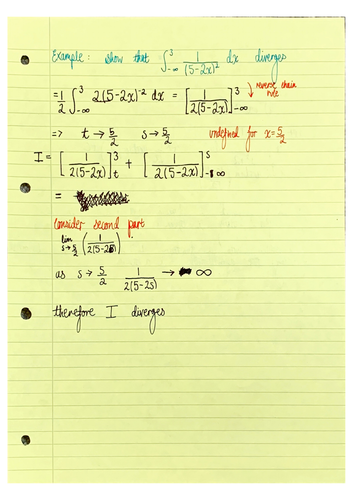 Example: show that ∫_{-∞}^{3} 1/(5-2x)² dx diverges
= 1/2 ∫_{-∞}^{3} 2(5-2x)^{-2} dx = [1/2(5-2x)]_{-∞}^{3} ↘ reverse chain rule
=> t → 5/2 s → 5/2 undefined for x = 5/2
I = [1/2(5-2x)]_{t}^{3} + [1/2(5-2x)]_{-∞}^{s}
=
Consider second part
lim_{s→5/2} (1/2(5-2s))
as s → 5/2 1/2(5-2s) → ∞
therefore I diverges